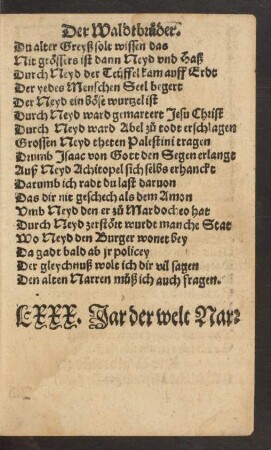 Der Waldtbrůder.
Du alter Greyß solt wissen das
Nit grössers ist dann Neyd vnd Haß
Durch Neyd der Teüffel kam auff Erdt
Der yedes Menschen Seel begert
Der Neyd ein böse wurtzel ist
Durch Neyd ward gemartert Jesu Christ
Durch Neyd ward Abel zů todt erschlagen
Grossen Neyd theten Palestini tragen
Drumb Isaac von Gott den Segen erlangt
Auß Neyd Achitopel sich selbs erhanckt
Darumb ich radt du last daruon
Das dir nit geschech als dem Amon
Vmb Neyd den er zů Mardocheo hat
Durch Neyd zerstört wurdt manche Stat
Wo Neyd den Burger wonet bey
Da gadt bald ab jr policey
Der gleychnuß wolt ich dir vil sagen
Den alten Narren můß ich auch fragen.
LXXX. Jar der welt Nar⸗